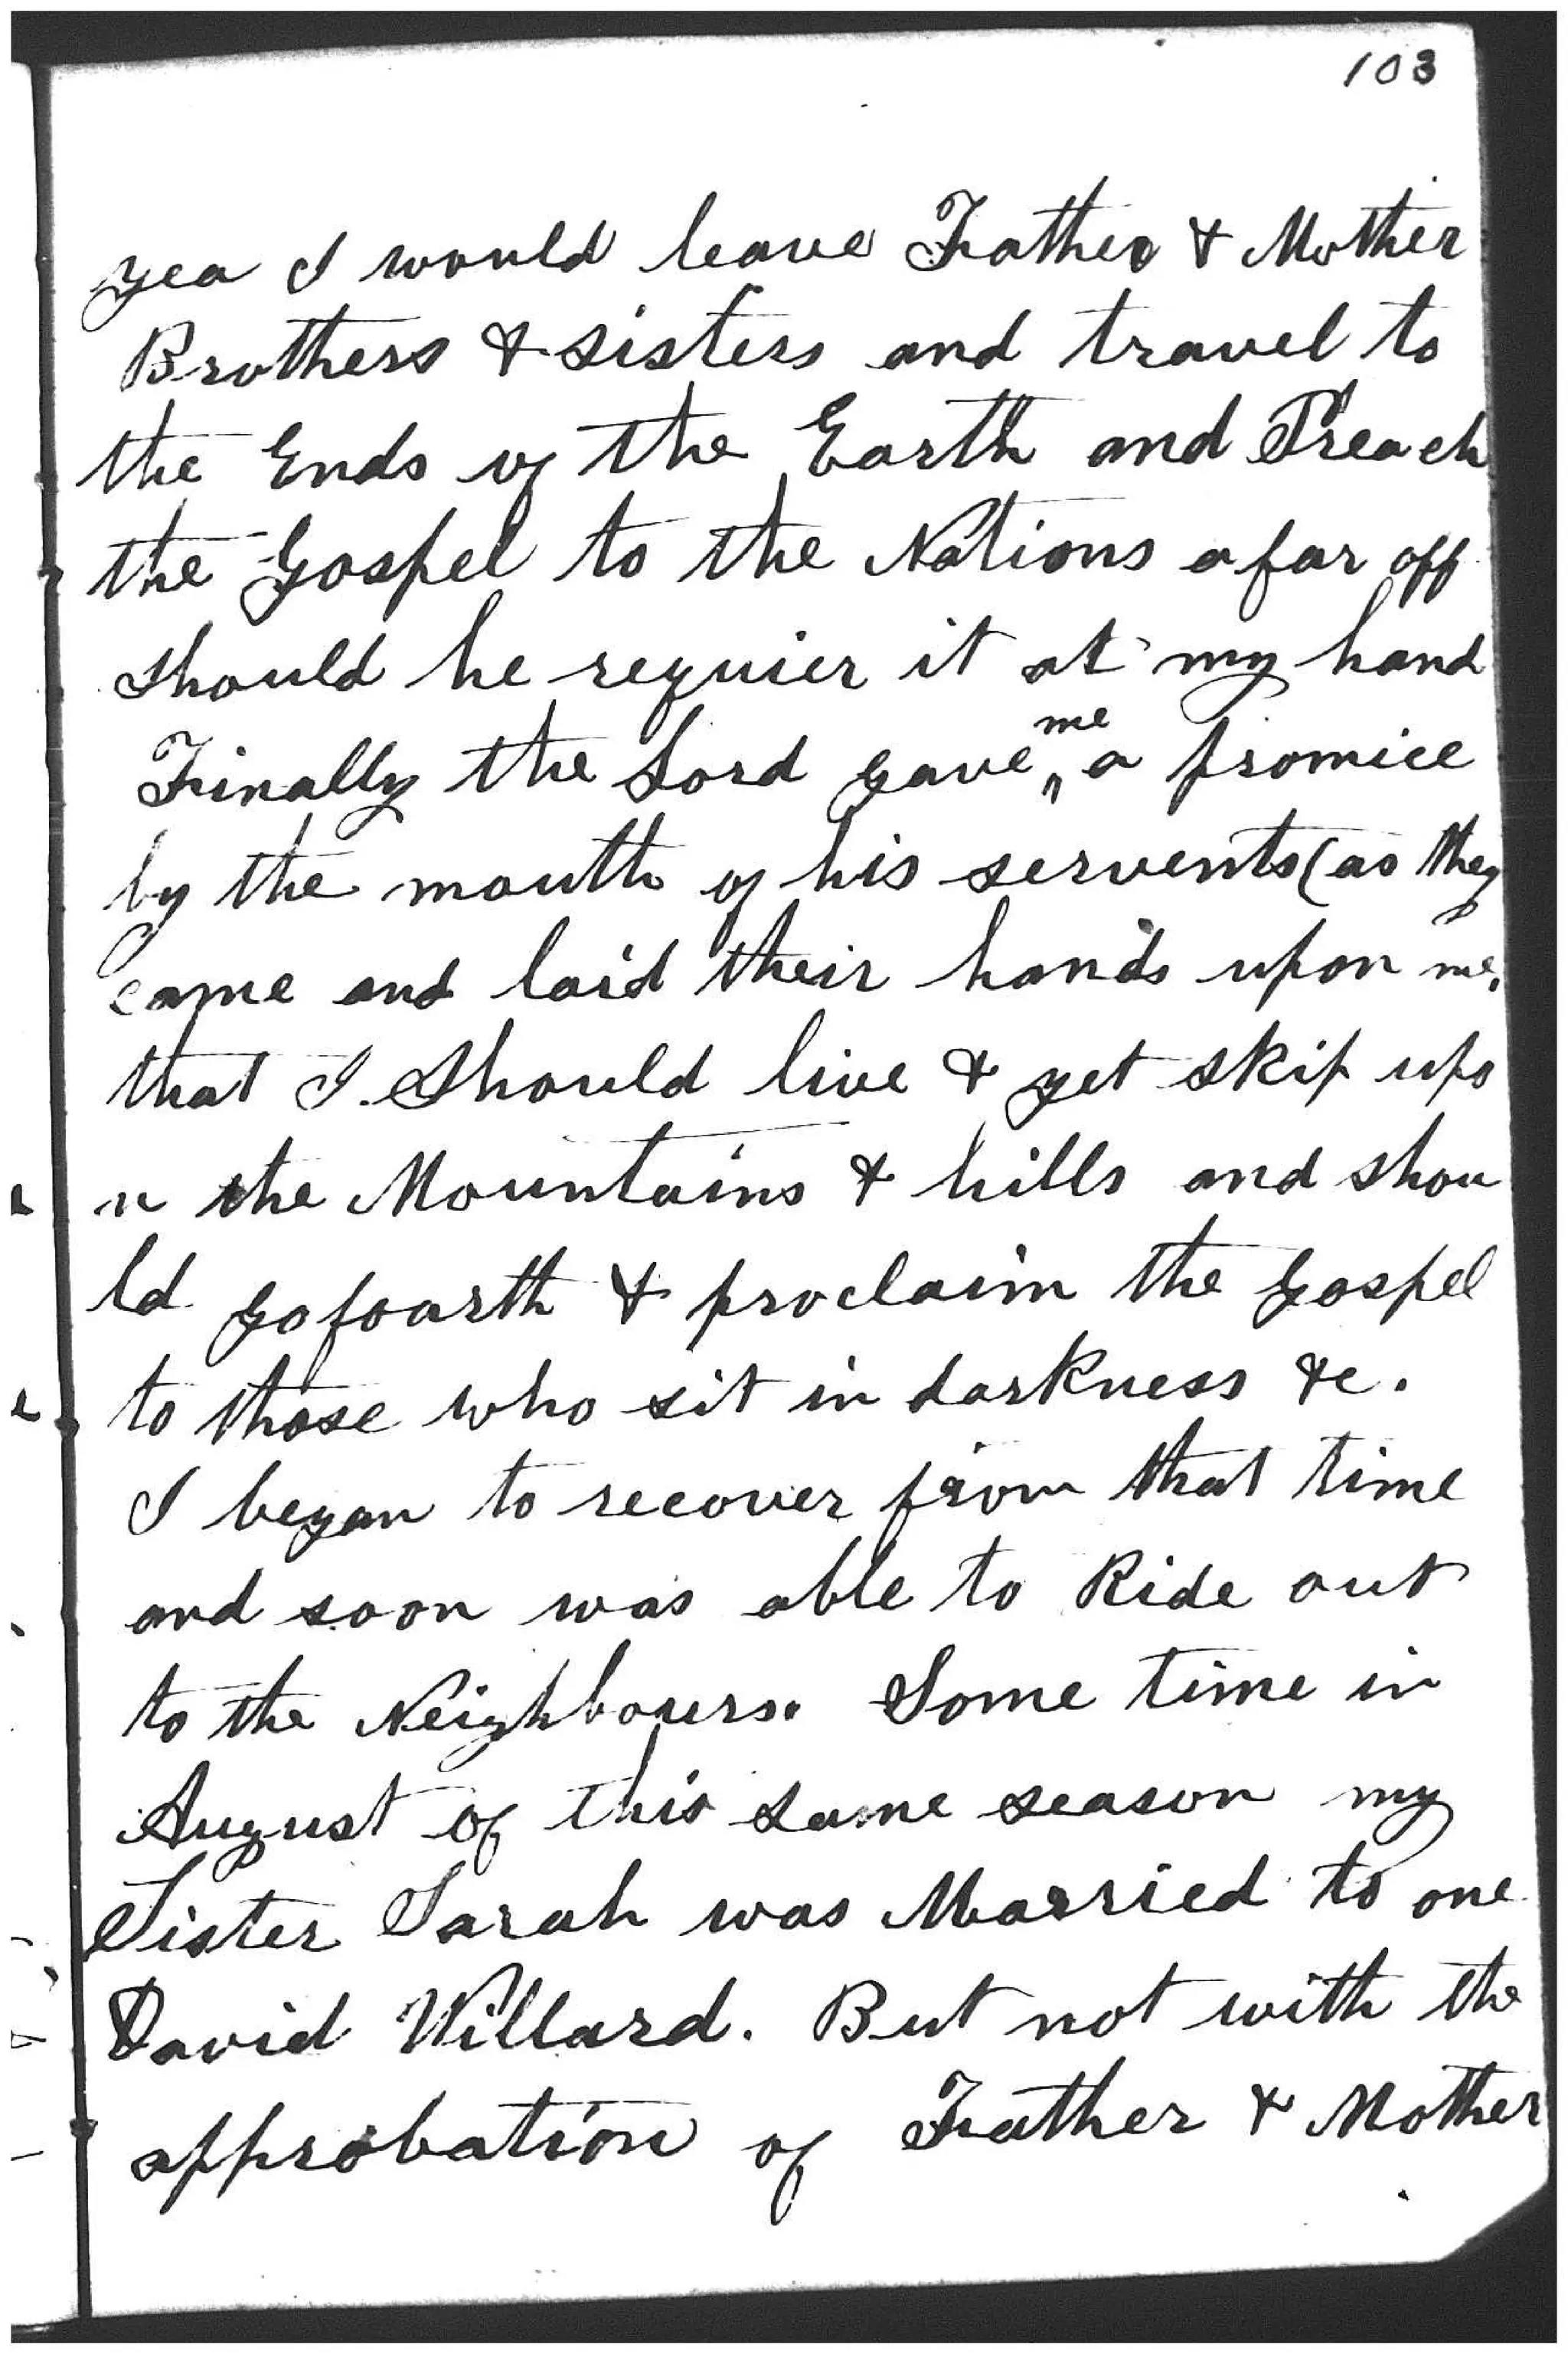 103
yea I would leave Father & Mother
Brothers & sisters and travel to
the Ends of the Earth and Preach
the Gospel to the Nations afar off
should he requier it at my hand
Finally the Lord gave me a promice
by the mouth of his servents (as they
came and laid their hands upon me,
that I should live & yet skip upo
n the Mountains & hills and shou
ld go fourth & proclaim the gospel
to those who sit in darkness &c.
I began to recover from that time
and soon was able to Ride out
to the Neighbours. Some time in
August of this same season my
Sister Sarah was Married to one
David Willard. But not with the
approbation of Father & Mother